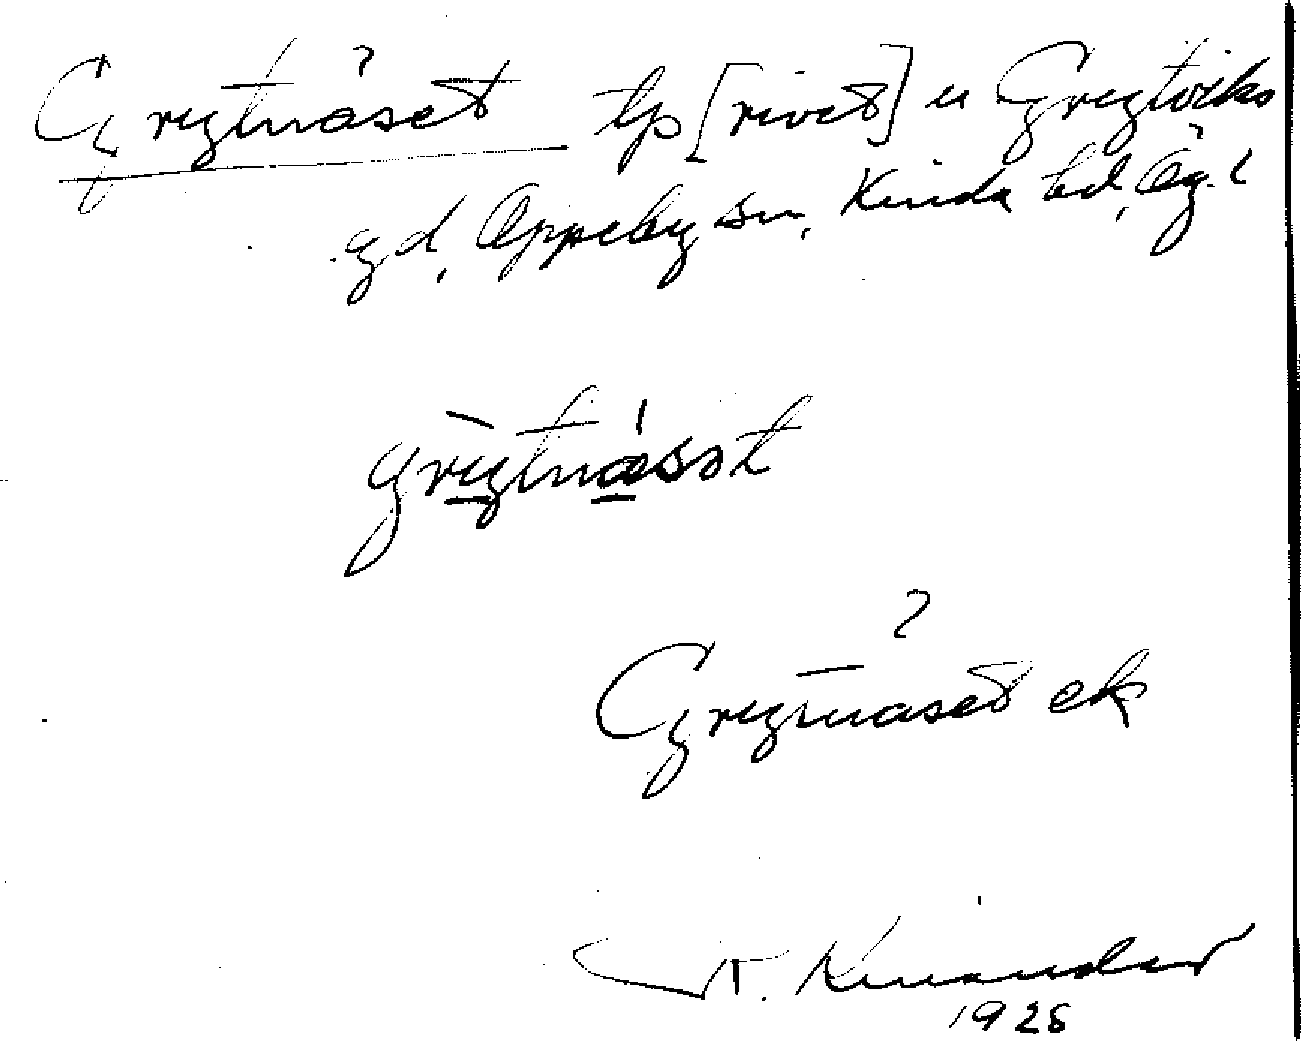 Grytnäset tp [rivet] u Grytviks
gd, Oppeby sn, Kinda hd, Ög. l
Grytnäset ek
Kinander
1926